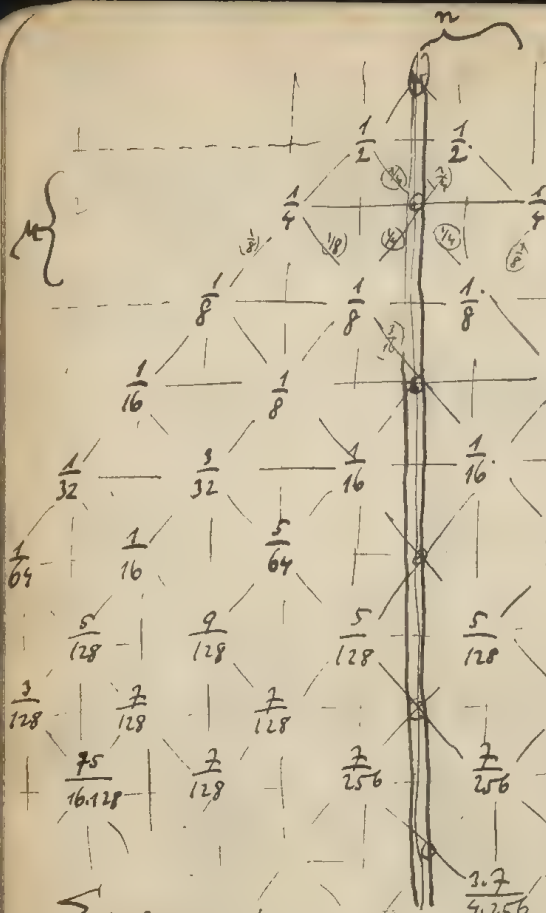 n
1/2 1/2
1/4 1/4
M 1/4 1/4
1/8 1/8 1/4 1/4 1/8
1/8 1/8 1/8
3/16
1/16 1/8
1/32 3/32 1/16 1/16
1/64 1/16 5/64
5/128 9/128 5/128 5/128
3/128 7/128 7/128
75/16.128 7/128 7/256 7/256
3.7/4.256